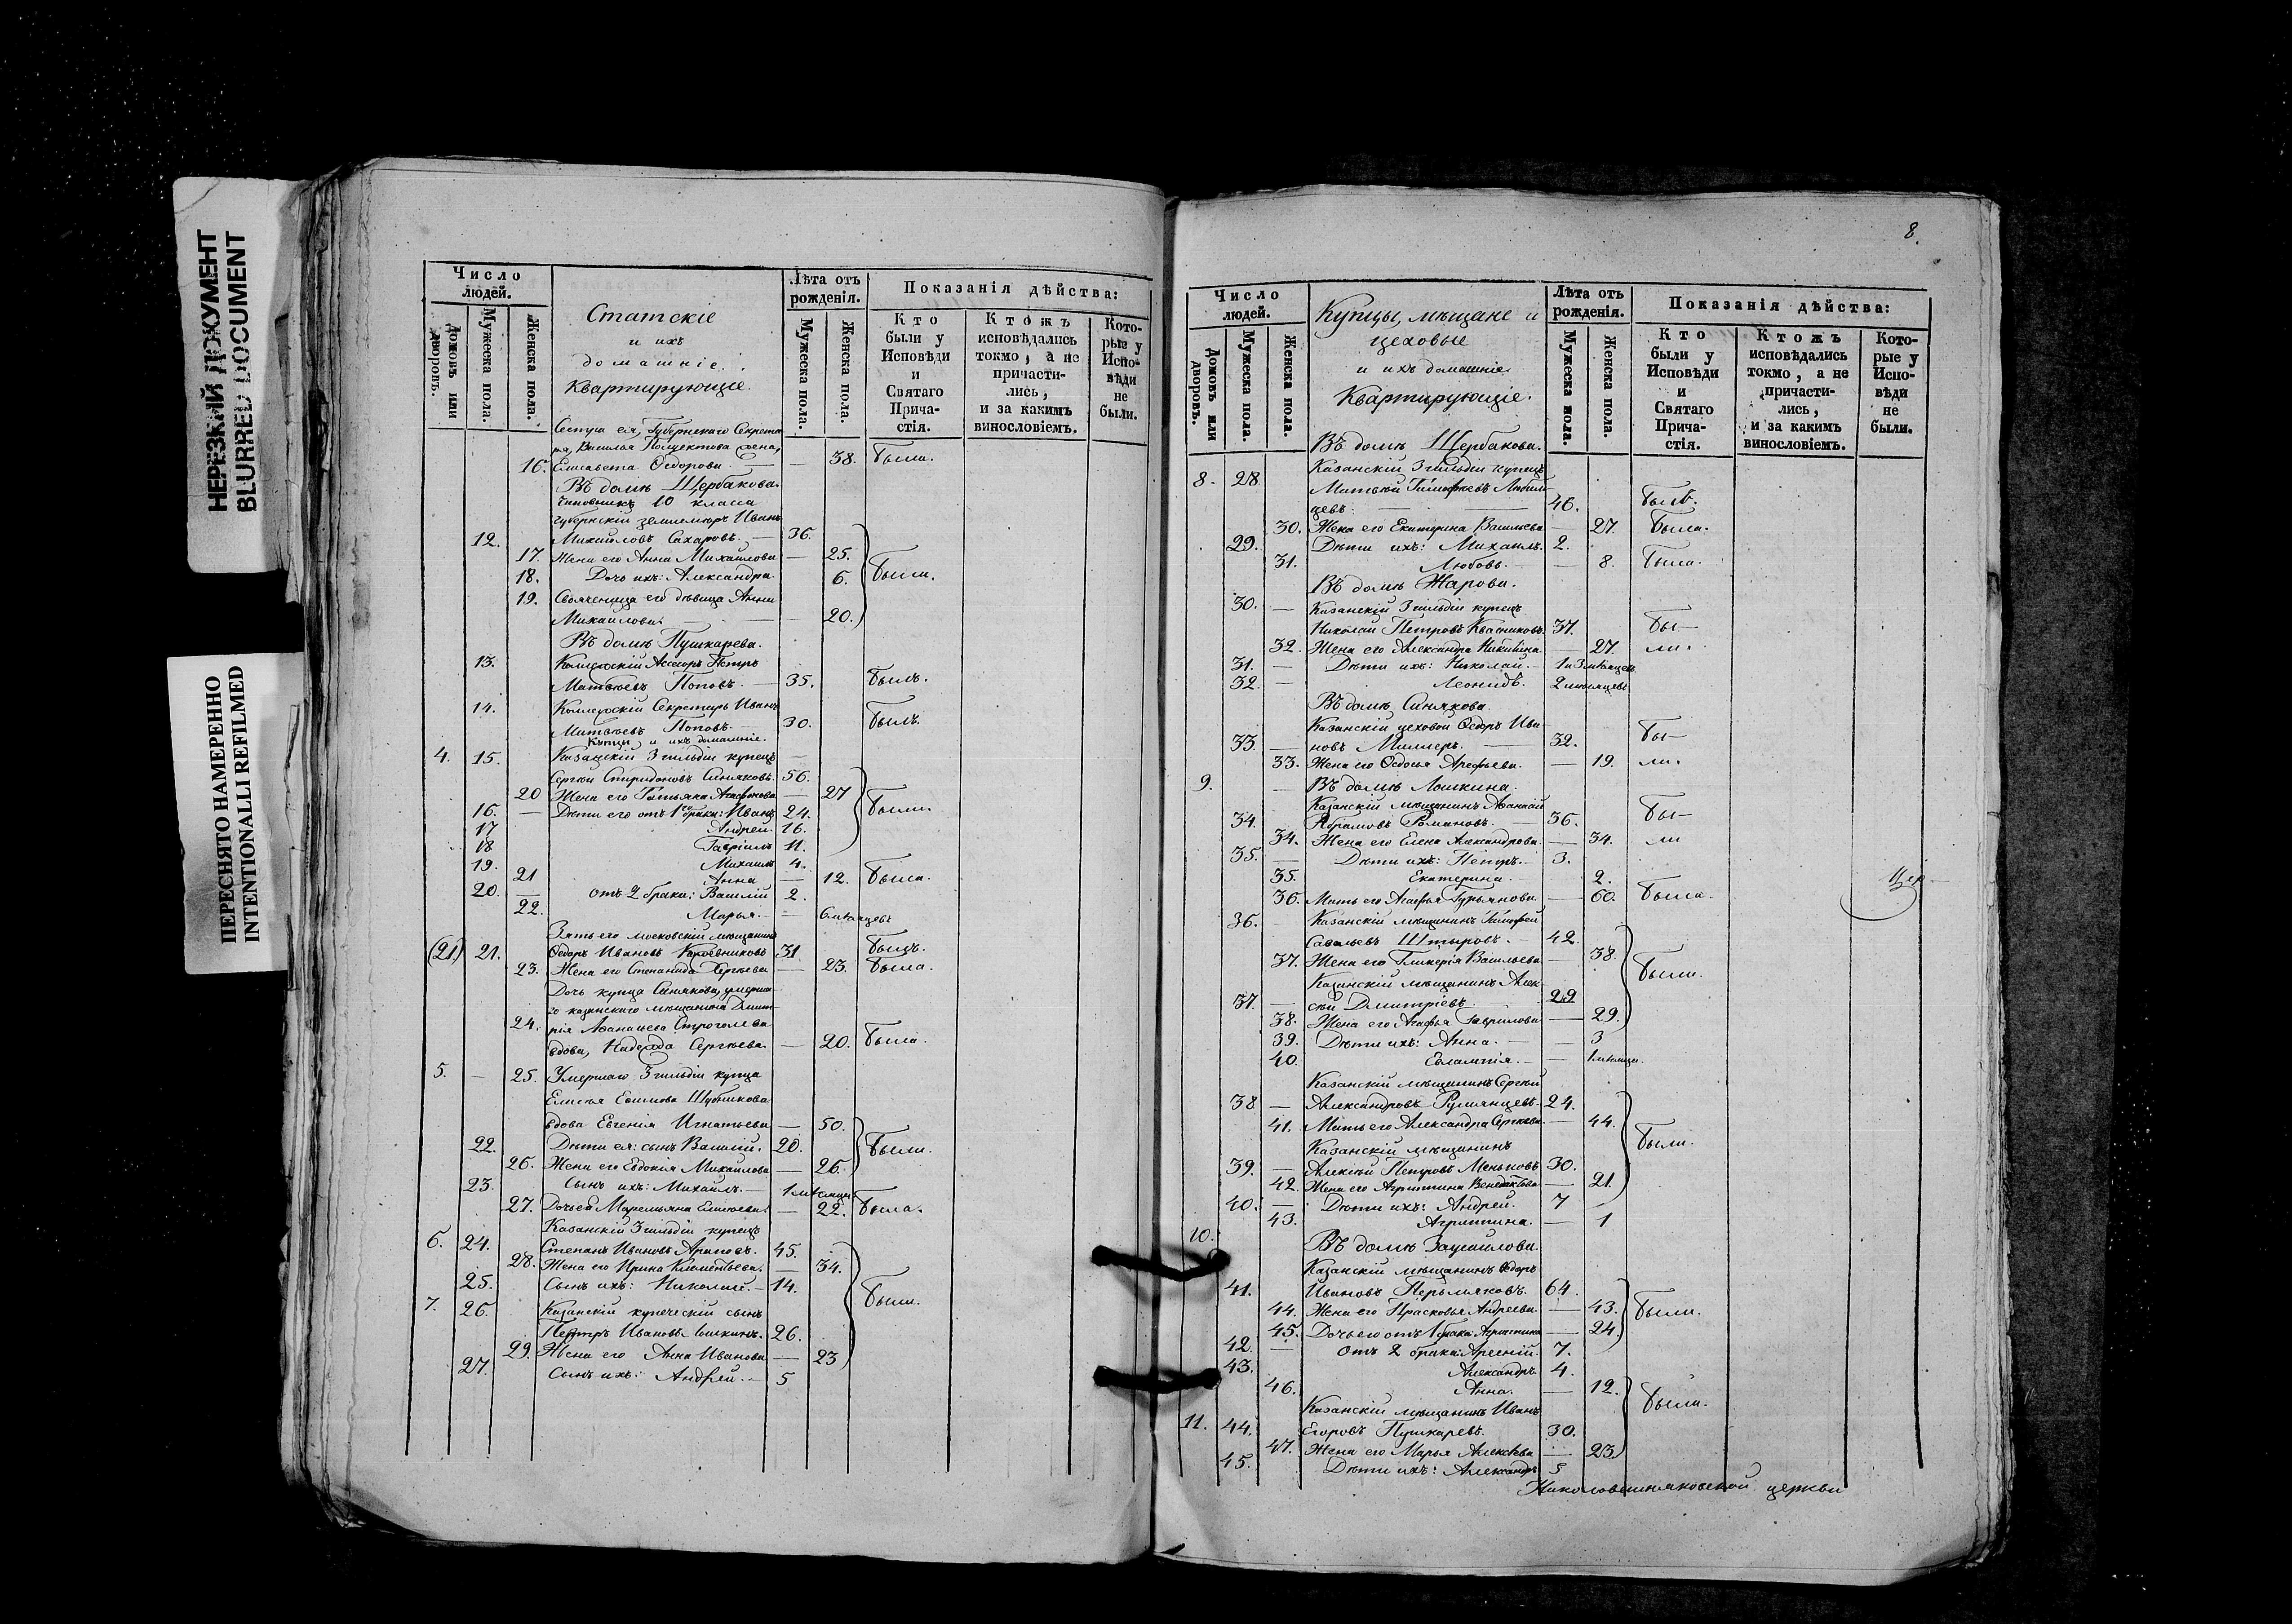 НЕРЕЗКИЙ ДОКУМЕНТ
BLURRED DOCUMENT
ПЕРЕСНЯТО НАМЕРЕННО
INTENTIONALLI REFILMED
Число людей.
домовъ или дворовъ.
Мужеска пола.
Женска пола.
Статскіе
и ихъ
домашніе.
Квартирующіе.
Лѣта отъ рожденія.
Мужеска пола.
Женска пола.
Показанія дѣйства:
Кто были у Исповѣди и Святаго Причастія.
Ктожъ исповѣдались токмо, а не причастились, и за какимъ винословіемъ.
Которые у Исповѣди не были.
Сестра ея, Губернскаго Секрета
ря, Василья Полуектова жена,
16. Елисавета Ѳедорова — 38. была.
Въ домѣ Щербакова.
Чиновникъ 10 класса
Губернскій землемѣръ Иванъ
12. Михайловъ Сахаровъ. — 36.
17. Жена его Анна Михайлова — 25.
18. Дочь ихъ: Александра. 6. были.
19. Свояченица его дѣвица Анна
Михайлова. — 20.
Въ домѣ Пушкарева.
13. Коллежскій Ассесоръ Петръ
Матвѣевъ Поповъ. — 35. былъ.
14. Коллежскій Секретарь Иванъ
Матвѣевъ Поповъ. — 30. былъ.
Купцы и ихъ домашніе.
4. 15. Казанскій 3 гильдіи купецъ —
Сергѣй Спиридоновъ Синяковъ. 56.
20 Жена его Татьяна Агафонова — 27
16. — Дѣти его отъ 1го брака: Иванъ 24. были.
17 Андрей. 16.
18 Гавріилъ 11.
19. Михаилъ 4.
21 Анна — 12. была.
20. — отъ 2 брака: Василій 2.
22. Марья. — 6 мѣсяцевъ
Зять его московскій мѣщанинъ
(21) 21. Ѳедоръ Ивановъ 31 былъ.
23. Жена его Степанида Сергѣева — 23. была.
Дочь купца Синякова, умерша
го казанскаго мѣщанина Дмит
24. рія Аѳанасьева Строголева
вдова, Надежда Сергѣева. — 20. была.
5. — 25. Умершаго 3 гильдіи купца
Елисѣя Шубникова
вдова Евгенія Игнатьева — 50.
22. Дѣти ея: сынъ Василій. 20. были.
26. Жена его Евдокія Михайлова — 26.
23. Сынъ ихъ: Михаилъ. — 1 мѣсяца
27. Дочь ея Маремьяна Елисѣева. — 22. была.
Казанскій 3 гильдіи купецъ
6. 24. Степанъ Ивановъ Араповъ. 45.
28. Жена его Ирина Клементьева. — 34.
25. Сынъ ихъ: Николай. — 14. были.
7. 26. Казанскій купеческій сынъ
Петръ Ивановъ Лошкинъ. 26.
29. Жена его Анна Иванова — 23
27. Сынъ ихъ: Андрей. — 5
8.
Число людей.
Домовъ или дворовъ.
Мужеска пола.
Женска пола.
Купцы, мѣщане и
цеховые
и ихъ домашніе.
Квартирующіе.
Лѣта отъ рожденія.
Мужеска пола.
Женска пола.
Показанія дѣйства:
Кто были у Исповѣди и Святаго Причастія.
Ктожъ исповѣдались токмо, а не причастились, и за какимъ винословіемъ.
Которые у Исповѣди не были.
Въ домѣ Щербакова.
8. 28 Казанскій 3 гильдіи купецъ
Матвѣй Тимофѣевъ Любим
цевъ. — 46. былъ.
30. Жена его Екатерина Васильева — 27. была.
29. Дѣти ихъ: Михаилъ. 2.
31. Любовь. — 8. была.
Въ домѣ Жарова.
30. — Казанскій 3 гильдіи купецъ
Николай Петровъ Квасниковъ. 37. бы—
32. Жена его Александра Никитина — 27. ли.
31. — Дѣти ихъ: Николай. — 1 и 3 мѣсяцевъ
32. — Леонидъ. 2 мѣсяцевъ
Въ домѣ Синякова.
Казанскій цеховой Ѳедоръ Ива
33. — новъ Миллеръ. — 32. бы—
33. Жена его Ѳедосья Арефьева. — 19. ли.
9. — Въ домѣ Лошкина.
Казанскій мѣщанинъ Аѳанасій
34. Абрамовъ Романовъ. — 36. бы—
34. Жена его Елена Александрова. — 34. ли
35. — Дѣти ихъ: Петръ. — 3.
35. Екатерина. — 2.
36. Мать его Агафья Гурьянова — 60. была.
36. — Казанскій мѣщанинъ Тимофей
Савельевъ Штыровъ. — 42.
37. Жена его Гликерія Васильева — 38. были.
Казанскій мѣщанинъ Алек
37. — сѣй Дмитріевъ. 29
38. Жена его Агафья Гаврилова — 29.
39. Дѣти ихъ: Анна. — 3
40. Евлампія. — 1 мѣсяца.
Казанскій мѣщанинъ Сергѣй
38 — Александровъ Румянцевъ. 24.
41. Мать его Александра Сергѣева. — 44.
Казанскій мѣщанинъ были.
39. — Алексѣй Петровъ Меньковъ 30.
42. Жена его Агриппина — 21.
40. — Дѣти ихъ: Андрей. 7
43. Агриппина. — 1
10. Въ домѣ Заусайлова.
Казанскій мѣщанинъ Ѳедоръ
41. Ивановъ Перьмяковъ. 64.
44. Жена его Прасковья Андреева. — 43. были.
45. Дочь его отъ 1 брака: Агриппина — 24.
42. — Отъ 2 брака: Арсеній. 7.
43. Александръ. 4.
46. Анна. — 12.
Казанскій мѣщанинъ Иванъ были.
11. 44. Егоровъ Пушкаревъ. 30.
47. Жена его Марья Алексѣева — 23.
45. Дѣти ихъ: Александръ 5
церкви